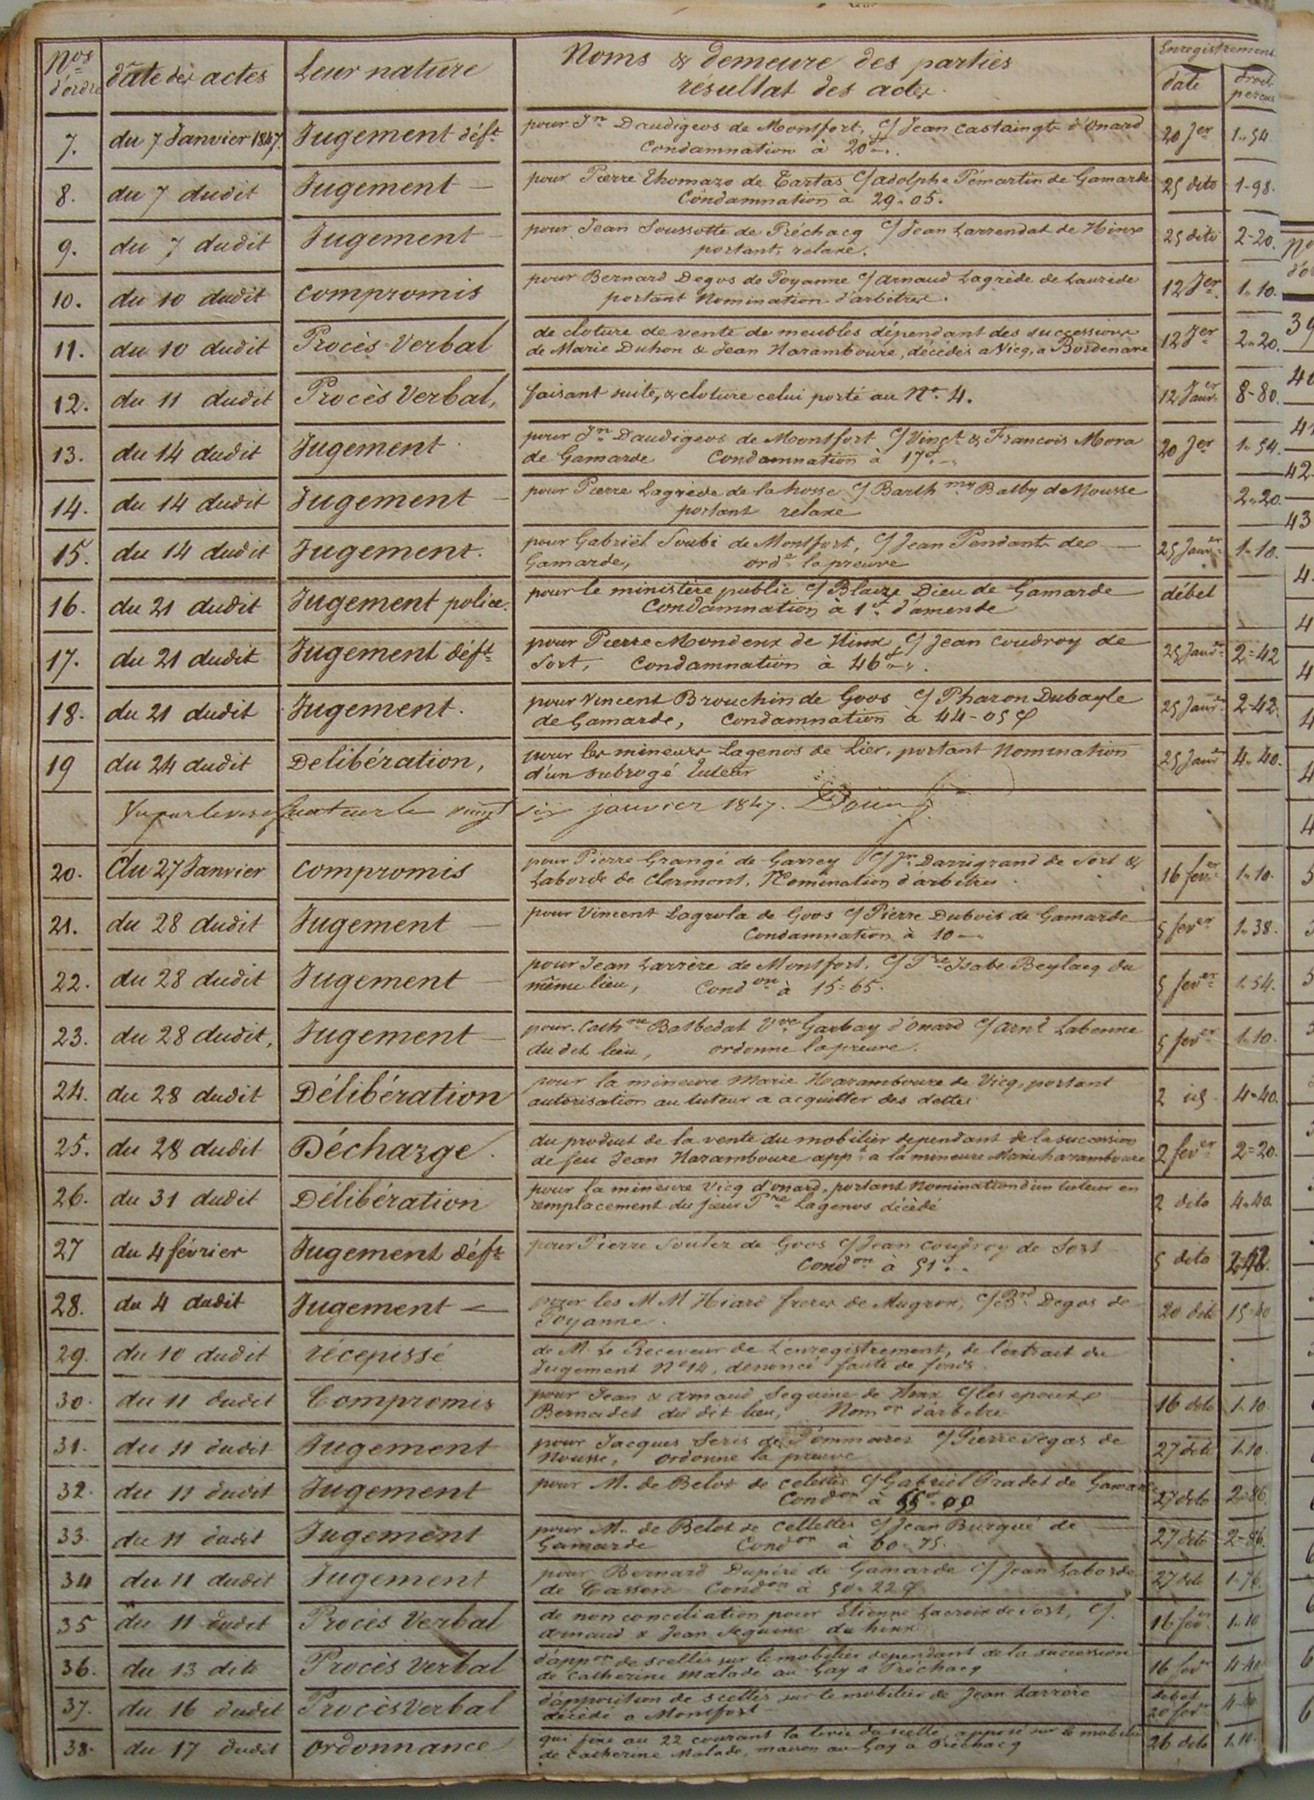 Nos d'ordre | date des actes | Leur nature | Noms & demeure des parties résultat des actes. | Enregistrement date | droit percus
7. | du 7 Janvier 1847. | Jugement déft | pour Jn Daudigeos de Montfort, c/ Jean Castaingts d'Onard
Condamnation à 20f. | 20 Jer | 1.54
8. | du 7 dudit | Jugement | pour Pierre Thomazo de Tartas c/ adolphe Pémartin de Gamarde
Condamnation à 29.05. | 25 dito | 1-98.
9. | du 7 dudit | Jugement | pour Jean Soussotte de Préchacq c/ Jean Larrendat de Hinx
portant relaxe. | 25 dito | 2-20.
10. | du 10 dudit | Compromis | pour Bernard Degos de Poyanne c/ arnaud Lagrède de Laurède
portant Nomination d'arbitres. | 12 Jer | 1.10.
11. | du 10 dudit | Procès-Verbal | de cloture de vente de meubles dépendant des successions
de Marie Duhon & Jean Haramboure, décédés a Vicq, a Bordenave | 12 Jer | 2.20.
12. | du 11 dudit | Procès Verbal, | faisant suite, & cloture celui porté au No 4. | 12 Janer | 8-80.
13. | du 14 dudit | Jugement | pour Jn Daudigeos de Montfort c/ Vinct & Francois Mora
de Gamarde Condamnation à 17f. | 20 Jer | 1.54.
14. | du 14 dudit | Jugement | pour Pierre Lagrède de la hosse c/ Barthmy Batby de Nousse
portant relaxe | 2.20.
15. | du 14 dudit | Jugement. | pour Gabriël Soubé de Montfort, c/ Jean Pendants de
Gamarde, orde la preuve | 25 Janer | 1.10.
16. | du 21 dudit | Jugement police. | pour le ministère public c/ Blaize Dieu de Gamarde
Condamnation à 1f. d'amende | débet
17. | du 21 dudit | Jugement déft | pour Pierre Mondenx de Hinx c/ Jean Coudroy de
Sort, Condamnation à 46f. | 25 Janer | 2=42
18. | du 21 dudit | Jugement. | pour Vincent Brouchin de Goos c/ Pharon Dubayle
de Gamarde, Condamnation à 44-05 | 25 Janr | 2-42.
19 | du 24 dudit | Delibération, | pour les mineurs Lagenos de Lier, portant Nomination
d'un subrogé tuteur | 25 Janr | 4.40.
Vu par le verificateur le vingt six janvier 1847.
20. | du 27 Janvier | Compromis | pour Pierre Grangé de Garrey c/ Darrigrand de Sort &
Laborde de Clermont, Nomination d'arbitres. | 16 fever | 1.10.
21. | du 28 dudit | Jugement | pour Vincent Lagrola de Goos c/ Pierre Dubois de Gamarde
Condamnation à 10 | 5 fever | 1.38.
22. | du 28 dudit | Jugement | pour Jean Larrère de Montfort, c/ Pre Isabe Beylacq du
même lieu, Condon à 15=65. | 5 fever | 1.54.
23. | du 28 dudit, | Jugement | pour Cathne Balbedat Vve Garbay d'Onard c/ arnd Labenne
du dit lieu, ordonne la preuve. | 5 fever | 1.10.
24. | du 28 dudit | Délibération | pour la mineure Marie Haramboure de Vicq, portant
autorisation au tuteur a acquitter des dettes | 2 | 4.40.
25. | du 28 dudit | Décharge. | du produit de la vente du mobilier dependant de la succession
de feu Jean Haramboure appt a la mineure Marie haramboure | 2 fever | 2=20.
26. | du 31 dudit | Délibération | pour la mineure Vicq d'onard, portant Nomination d'un tuteur en
remplacement du sieur Pre Lagenos décédé | 2 dito | 4.40
27 | du 4 février | Jugement déft | pour Pierre Soulez de Goos c/ Jean Coudroy de Sort
Condon à 51f. | 5 dito | 2.42.
28. | du 4 dudit | Jugement | pour les MM Hiard freres de Mugron, c/ Bd Degos de
Poyanne. | 20 dito | 15=40
29. | du 10 dudit | récépissé | de M. Le Receveur de l'enregistrement, de l'extrait du
Jugement No 14, dénoncé faute de fonds.
30. | du 11 dudit | Compromis | pour Jean & arnaud Seguine de Hinx c/ les epoux
Bernadet du dit lieu, Nomon d'arbitre | 16 dito | 1.10
31. | du 11 dudit | Jugement | pour Jacques Seris de Pommarez c/ Pierre Segas de
Nousse, ordonne la preuve | 27 dito | 1.10
32. | du 11 dudit | Jugement | pour M. de Belot de Celettes c/ Gabriel Pradet de Gamarde
Condon à | 27 dito | 2=86
33. | du 11 dudit | Jugement | pour M. de Belot de Cellettes c/ Jean Burgué de
Gamarde Condon à 60-75. | 27 dito | 2=86.
34 | du 11 dudit | Jugement | pour Bernard Dupéré de Gamarde c/ Jean Laborde
de Cassen Condon à 50.22 | 27 dito | 1.76
35 | du 11 dudit | Procès Verbal | de non conciliation pour Etienne Lacroix de Sort, c/
arnaud & Jean Seguine du hinx | 16 fever | 1.10
36. | du 13 dito | Procès Verbal | d'appon de scellés sur le mobilier dependant de la succession
de Catherine Malade au Gay a Préchacq | 16 fever | 4.40
37. | du 16 dudit | Procès Verbal | d'apposition de scellés sur le mobilier de Jean Larrère
décédé a Montfort | debet 20 fever | 4.40
38. | du 17 dudit | Ordonnance | qui fixe au 22 courant la levée du scellé apposé sur le mobilier
de Catherine Malade, maison au Gay a Préchacq | 26 dito | 1.10
No
d'o
39
40
41
42
43